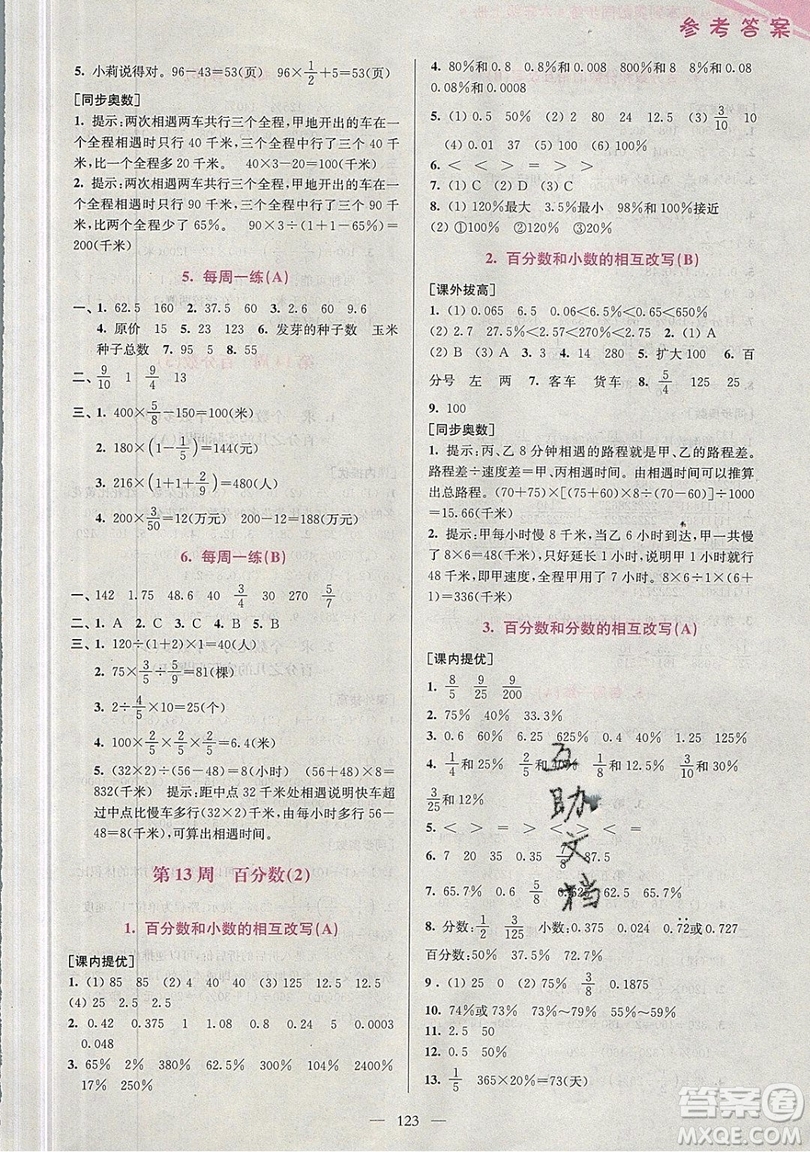 参考答案
5. 小莉说得对。96－43＝53(页) 96×1/2＋5＝53(页)
[同步奥数]
1. 提示:两次相遇两车共行三个全程,甲地开出的车在一个全程相遇时只行 40 千米,三个全程中行了三个 40 千米。 40×3＝120(千米)
2. 提示:两次相遇两车共行三个全程,甲地开出的车在一个全程相遇时只行 90 千米,三个全程中行了三个 90 千米,比两个全程少了 65%。 90×3÷(1＋1－65%)＝
200(千米)
5. 每周一练(A)
一、1. 62.5 160 2. 37.5 60 3. 20 60 9.6
4. 原价 15 5. 23 123 6. 发芽的种子数 玉米
种子总数 7. 95 5 8. 55
二、9/10 1 9/4 13
三、1. 400×5/8－150＝100(千米)
2. 180×(1－1/5)＝144(元)
3. 216×(1＋1＋2/9)＝480(人)
4. 200×3/50＝12(万元) 200－12＝188(万元)
6. 每周一练(B)
一、142 1.75 48.6 40 3/4 30 270 5/7
二、1. A 2. C 3. B 4. B 5. B
三、1. 120÷(1＋2)×1＝40(页)
2. 75×3/5÷5/9＝81(棵)
3. 2÷4/5×10＝25(个)
4. 100×2/5×2/5×2/5＝6.4(米)
5. (32×2)÷(56－48)＝8(小时) (56＋48)×8＝
832(千米) 提示:距中点 32 千米处相遇说明快车超
过中点比慢车多行(32×2)千米,由每小时多行(56－
48)＝8(千米),可算出相遇时间。
第 13 周 百分数(2)
1. 百分数和小数的相互改写(A)
[课内提优]
1. (1) 85 85 (2) 40 40 (3) 125 12.5 12.5
(4) 25 2.5 2.5
2. 0.42 0.375 1 1.08 0.9 0.24 5 0.0003
0.048
3. 65% 2% 380% 62.5% 300% 104% 2400%
17% 250%
4. 80%和 0.8 8%和 0.08 800%和 8 0.8%和
0.008 0.08%和 0.0008
5. (1) 0.5 50% (2) 0.8 80% (3) 3/10 10
(4) 0.01 0.37 100% 130%
6. < < > = < >
7. (1) C (2) D (3) C
8. (1) 120%最大 3.5%最小 98%和 100%接近
(2) ①100% ②120%
2. 百分数和小数的相互改写(B)
[课外拔高]
1. (1) 0.065 6.5 0.06<6.5%<0.65<650%
(2) 2.7 27.5 2.5%<2<270%<27.5 2. (1) A
(2) B (3) A 3. 4 0.014 280 5. 扩大 100 6. 百
分号 左 两 7. 客车 货车 8. 5/4 125%
9. 100
[同步奥数]
1. 提示:丙、乙 8 分钟相遇的路程就是甲、乙的路程差。
路程差÷速度差＝甲、乙相遇时间。由相遇时间可以推算
出总路程。(70＋75)×[(75＋60)×8÷(70－60)]÷1000
＝15.66(千米)
2. 提示:甲每小时慢 8 千米,当乙 6 小时到达,甲一共慢
了 8×6＝48(千米),只好延长 1 小时,说明甲 1 小时行
48 千米,即甲速度,甲一共用了 7 小时。8×6÷1×(6＋
1)＝336(千米)
3. 百分数和分数的相互改写(A)
[课内提优]
1. 8/5 9/25 9/200
2. 75% 40% 33.3%
3. 0.6 60% 0.625 62.5% 0.4 40% 1.25 125%
4. 1/4和 25% 1/2和 50% 2/5和 40% 3/10和 30%
3/25和 12%
5. < < > = > > < < =
6. 7 20 35 0.35 7/8 87.5
7. 65.7% 0.6 5/8 0.625 65.7%
8. 分数:1/2 3/125 小数:0.375 0.024 0.72或 0.727
百分数:50% 37.5% 72.7%
9. (1) 25% (2) 32% 3/8 0.1875
10. 74%或 73% 75% 73%~77%
11. 2.5 50
12. 4% 0.5%
13. 1/5 365×20%＝73(天)
五
助
文
档
— 123 —
答案圈
MXQE.COM